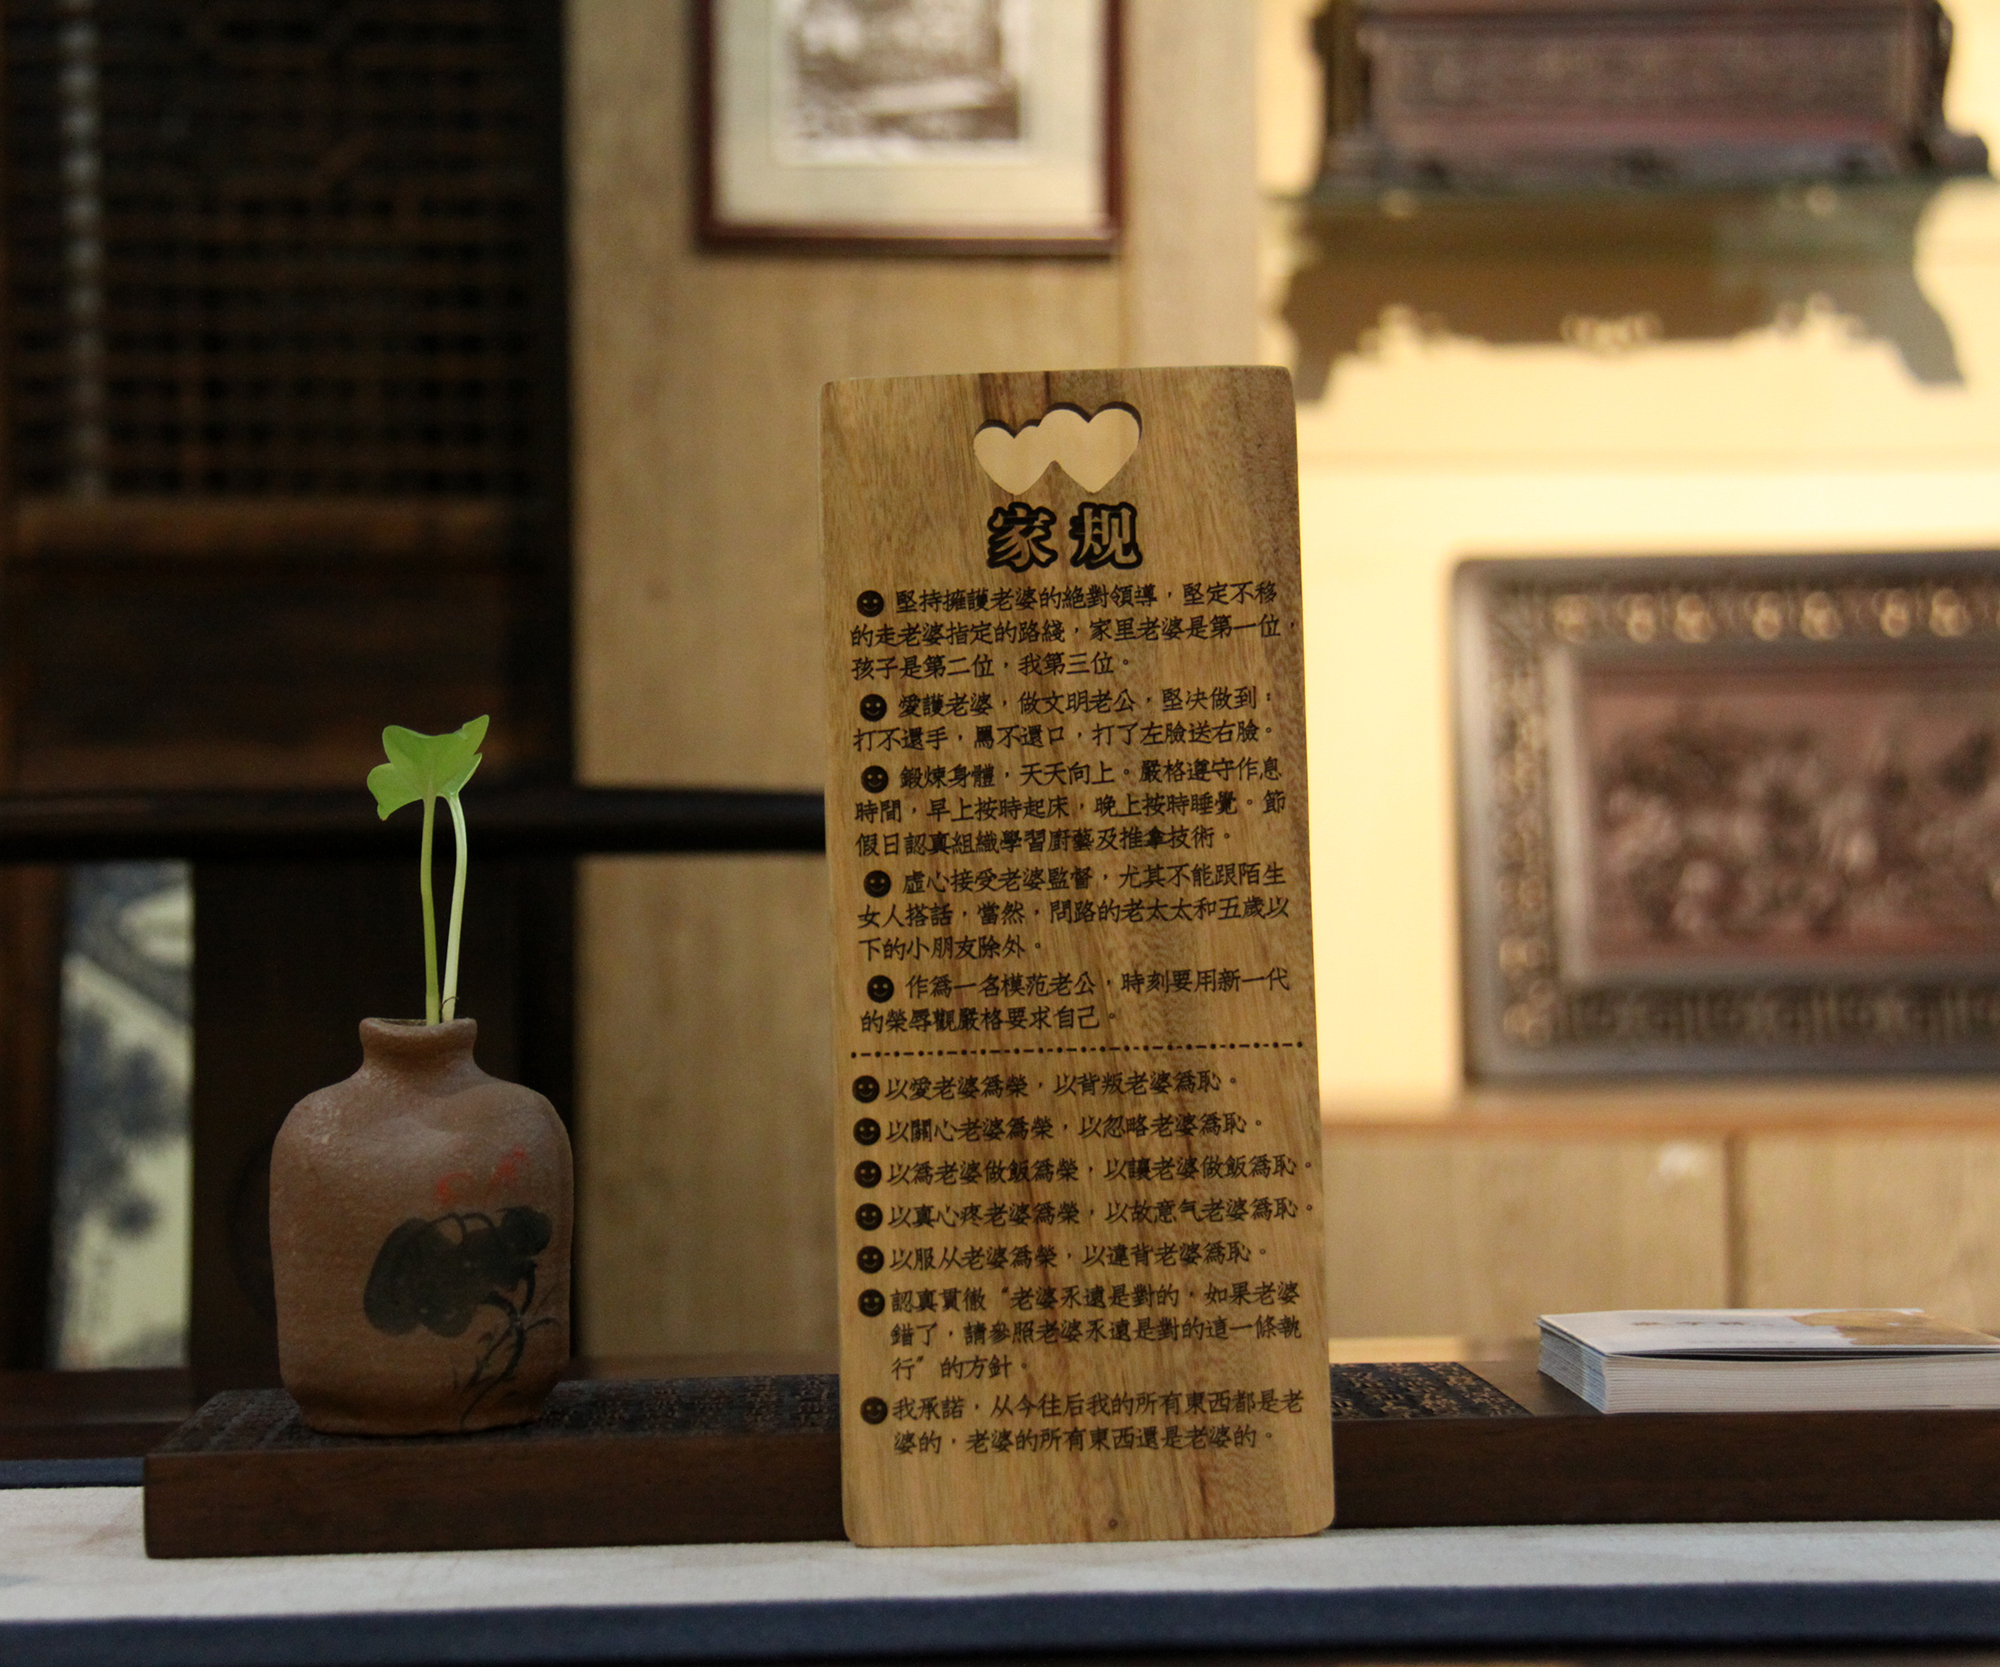 家规
堅持擁護老婆的絶對領導，堅定不移
的走老婆指定的路綫，家里老婆是第一位，
孩子是第二位，我第三位。
愛護老婆，做文明老公，堅决做到：
打不還手，罵不還口，打了左臉送右臉。
鍛煉身體，天天向上。嚴格遵守作息
時間，早上按時起床，晚上按時睡覺。節
假日認真組織學習廚藝及推拿技術。
虚心接受老婆監督，尤其不能跟陌生
女人搭話，當然，問路的老太太和五歲以
下的小朋友除外。
作爲一名模范老公，時刻要用新一代
的榮辱觀嚴格要求自己。
以愛老婆爲榮，以背叛老婆爲恥。
以關心老婆爲榮，以忽略老婆爲恥。
以爲老婆做飯爲榮，以讓老婆做飯爲恥。
以真心疼老婆爲榮，以故意气老婆爲恥。
以服从老婆爲榮，以違背老婆爲恥。
認真貫徹“老婆永遠是對的，如果老婆
錯了，請參照老婆永遠是對的這一條執
行”的方針。
我承諾，从今往后我的所有東西都是老
婆的，老婆的所有東西還是老婆的。